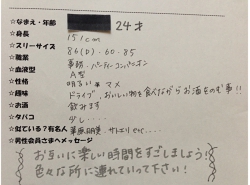 ☆なまえ・年齢 24才
☆身長 151cm
☆スリーサイズ 86(D)・60・85
☆職業 事務、パーティーコンパニオン
☆血液型 A型
☆性格 明るい・マメ
☆趣味 ドライブ、おいしい物を食べながらお酒をのむ事!!
☆お酒 飲みます
☆タバコ 少し....
☆似ている?有名人 菜々緒、サトエリetc....
☆男性会員さまへメッセージ
お互いに楽しい時間をすごしましょう!
色々な所に連れていって下さい!